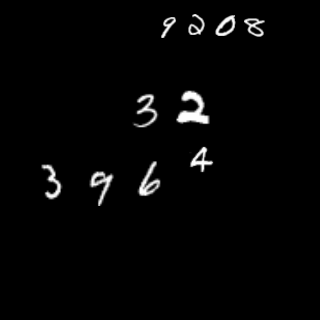 9208
32
3964